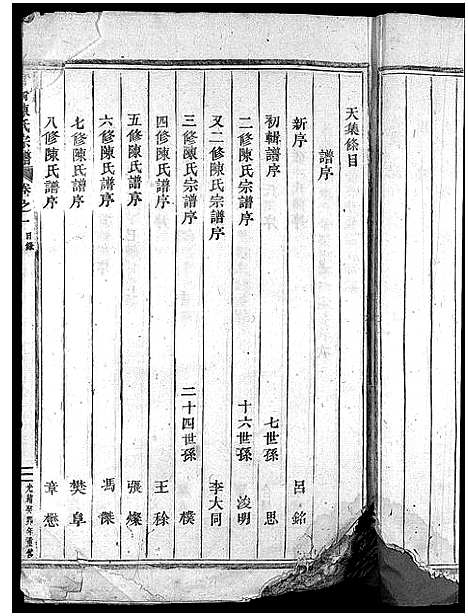 天集條目
譜序
新序 呂銘
初輯譜序 七世孫 思
二修陳氏宗譜序 十六世孫 浚明
又二修陳氏宗譜序 李大同
三修陳氏宗譜序 二十四世孫 樸
四修陳氏譜序 王稌
五修陳氏譜序 張燦
六修陳氏譜序 馮
七修陳氏譜序 樊阜
八修陳氏譜序 章懋
陳氏宗譜 卷之一 目錄
光緒 年重修